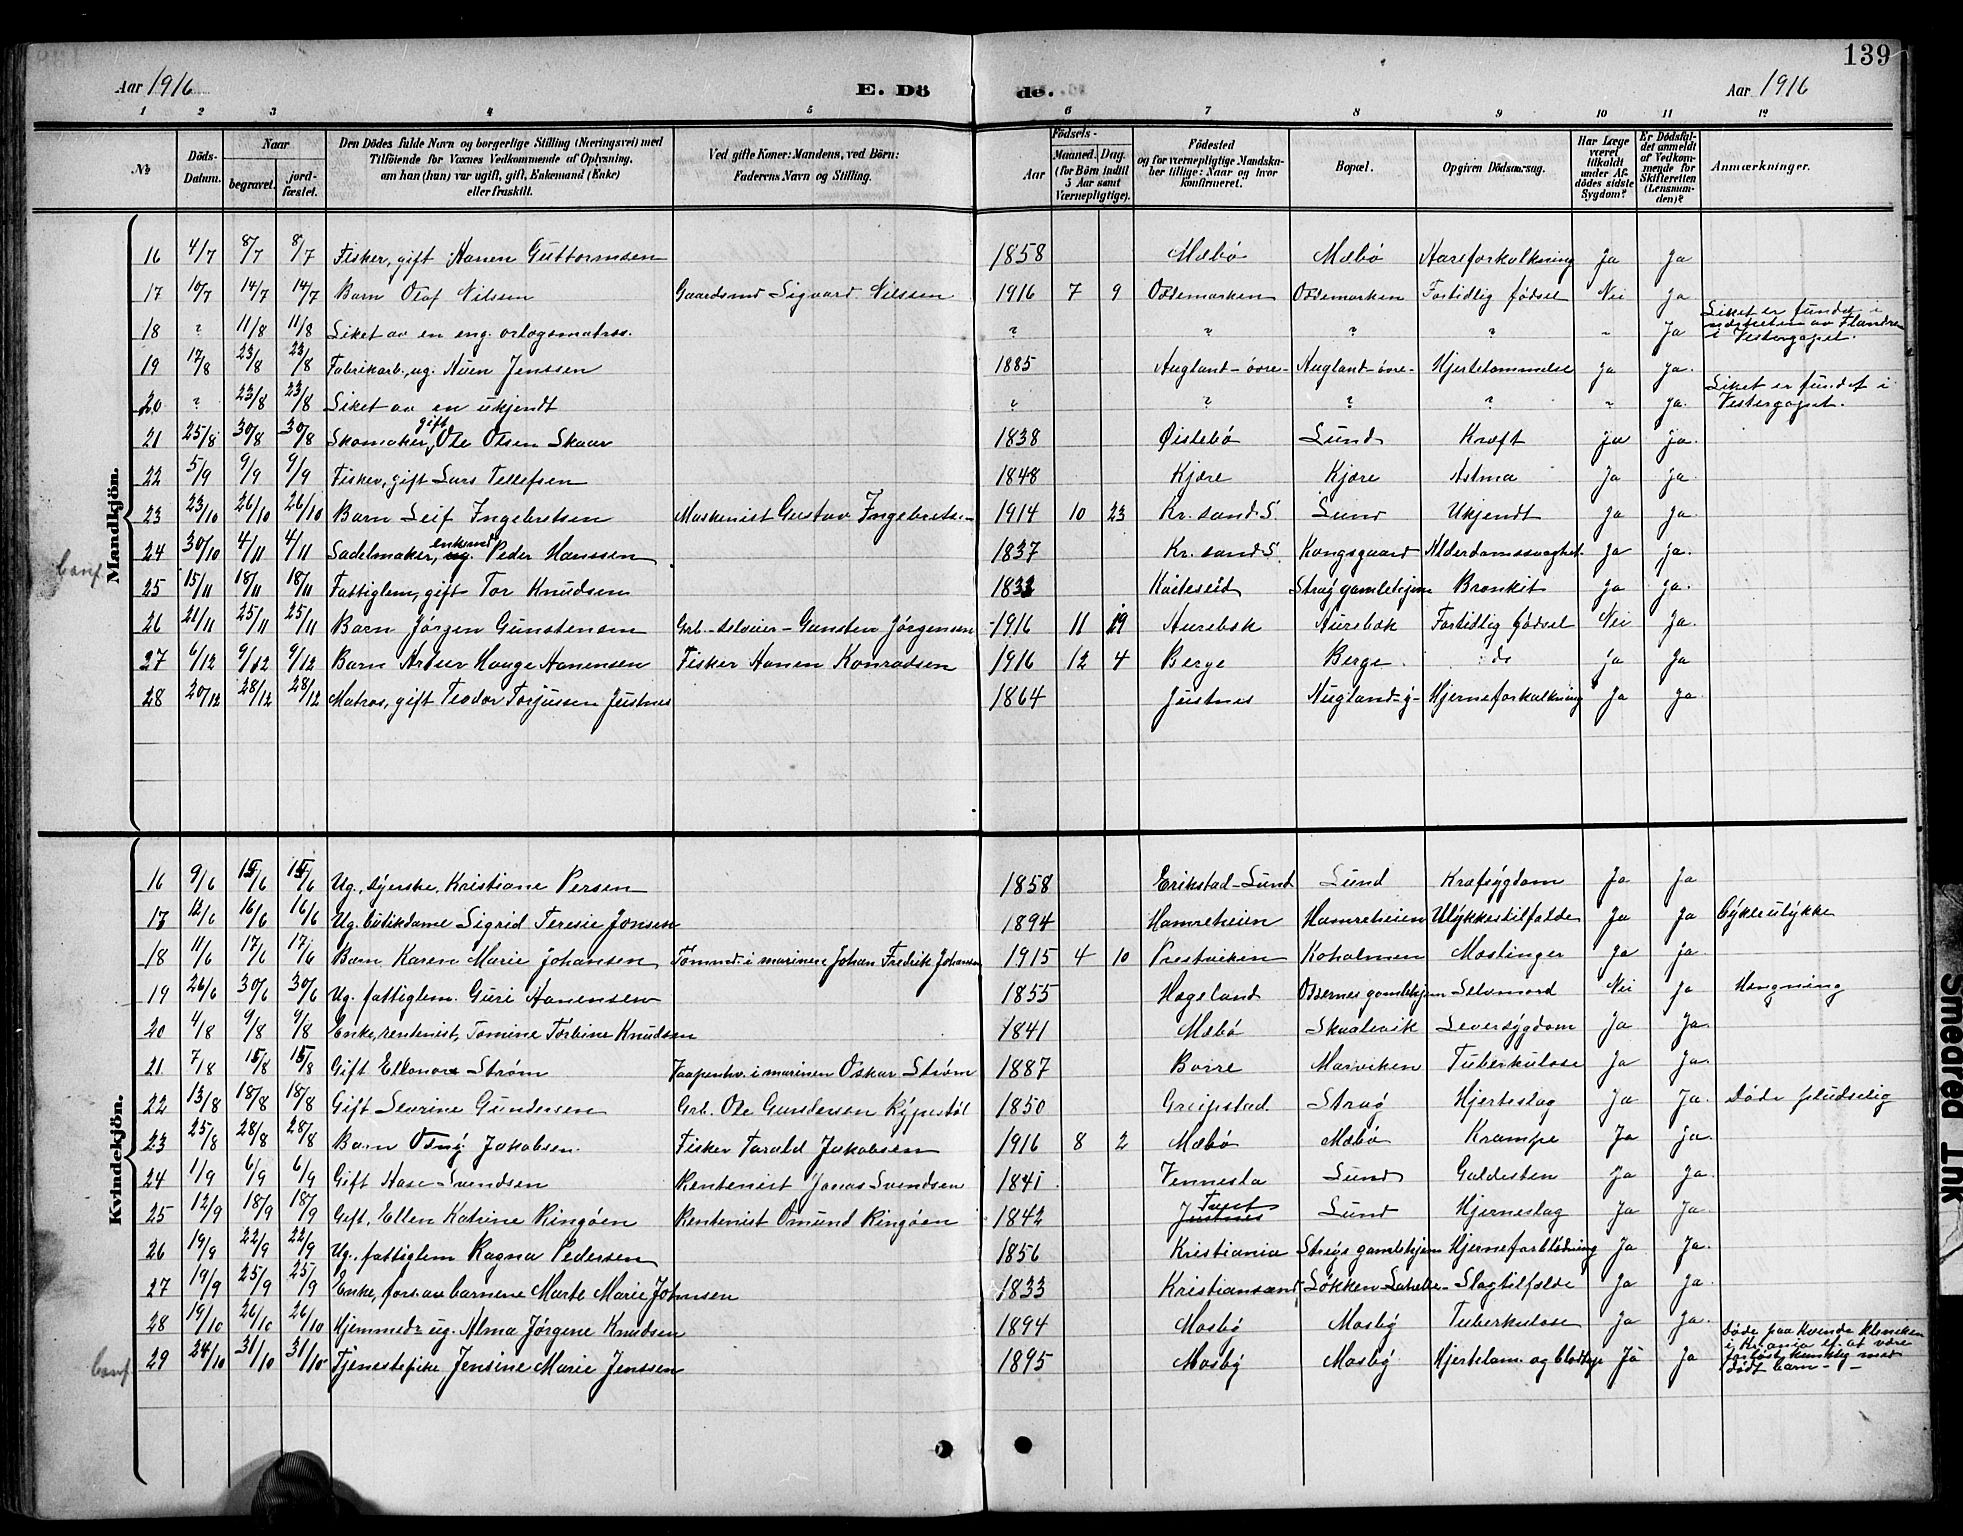 139
Aar 1916 E. Dö de. Aar 1916
1 2 3 4 5 6 7 8 9 10 11 12
№ Döds-Datum. Naar begravet. jord-fæstet. Den Dödes fulde Navn og borgerlige Stilling (Næringsvei) med Tilföiende for Voxnes Vedkommende af Oplysning, om han (hun) var ugift, gift, Enkemand (Enke) eller fraskilt. Ved gifte Koner: Mandens, ved Börn: Faderens Navn og Stilling. Födsels- Aar Maaned. Dag. (for Börn indtil 5 Aar samt Værnepligtige). Födested og for værnepligtige Mandskaber tillige: Naar og hvor konfirmeret. Bopæl. Opgiven Dödsaarsag. Har Læge været tilkaldt under Afdödes sidste Sygdom? Er Dödsfaldet anmeldt af Vedkommende for Skifteretten (Lensmanden)? Anmærkninger.
Mandkjön.
16 4/7 8/7 8/7 Fisker, gift Aanen Guttormsen 1858 Mæbö Mæbö Aareforkalkning Ja Ja
17 10/7 14/7 14/7 Barn Olaf Nilsen Gaardsmd Sigvard Nilssen 1916 7 9 Oddemarken Oddemarken Fortidlig födsel Nei Ja
18 ? 11/8 11/8 Liket av en eng. orlogsmatros. ? ? ? ? " Ja Liket er fundet i nærheten av Flandren i Vestergapet.
19 17/8 23/8 23/8 Fabrikarb., ug. Aven Jenssen 1885 Augland-övre- Augland-övre- Hjertelammelse ja ja.
20 ? 23/8 23/8 Liket av en ukjendt ? ? ? ? " ja. Liket er fundet i Vestergapet.
21 25/8 30/8 30/8 Skomaker, gift Ole Olsen Skaar 1838 Øistebö Lund Kræft ja ja.
22 5/9 9/9 9/9 Fisker, gift Lars Tellefsen 1848 Kjære Kjære Astma Ja ja.
23 23/10 26/10 26/10 Barn Leif Ingebretsen Maskinist Gustav Ingebrets.- 1914 10 23 Kr. sand. S. Lund Ukjendt Ja Ja.
24 30/10 4/11 4/11 Sadelmaker, enkemd ug. Peder Hanssen 1837 Kr. sand S. Kongsgaard Alderdomssvaghet ja ja.
25 15/11 18/11 18/11 Fattiglem, gift Tor Knudsen Kviteseid Stray gamlehjem Bronkit ja ja.
26 21/11 25/11 25/11 Barn Jörgen Gunstensen Grb.-selveier-Gunsten Jörgensen 1916 11 19 Aurebæk Aurebæk Fortidlig födsel Nei Ja.
27 6/12 9/12 9/12 Barn Hauge Aanensen Fisker Aanen Konradsen 1916 12 4 Berge Berge. do ja Ja
28 20/12 28/12 28/12 Matros, gift Teodor Torjussen Justnes 1864 Justnes Augland-y- Hjerneforkalkning Ja ja
Kvindekjön.
16 9/6 15/6 15/6 Ug., syerske, Kristiane Persen 1858 Erikstad-Lund Lund Kræfsygdom Ja Ja
17 12/6 16/6 16/6 Ug. butikdame Sigrid Teresie Jonsen 1894 Hamreheien Hamreheien Ulykkestilfælde Ja Ja Cykleulykke
18 11/6 17/6 17/6 Barn Karen Marie Johansen Tömmd. i marinen Johan Fredrik Johansen 1915 4 10 Prestviken Koholmen Meslinger ja ja
19 26/6 30/6 30/6 Ug. fattiglem. Guri Aanensen 1855 Hægeland Oddernes gamlehjem Selvmord Nei ja Hængning
20 4/8 9/8 9/8 Enke, rentenist, Tomine Torbine Knudsen 1841 Mæbö Skaalevik Leversygdom Ja Ja.
21 7/8 15/8 15/8 Gift Elleonora Ström Vaapenhv. i marinen Oskar Ström 1887 Borre Marviken Tuberkulose Ja Ja.
22 13/8 18/8 18/8 Gift Severine Gundersen Grb. Ole Gundersen Rypestöl 1850 Greipstad Straö Hjerteslag Ja Ja. Döde pludselig
23 25/8 28/8 28/8 Barn Odny Jakobsen. Fisker Tarald Jakobsen 1916 8 2 Mæbö Mæbö Krampe Ja ja.
24 1/9 6/9 6/9 Gift Aase Svendsen Rentenist Jonas Svendsen 1841 Vennesla Lund Galdesten Ja Ja.
25 12/9 18/9 18/9 Gift. Ellen Katrine Ringöen Rentenist Omund Ringöen 1842 Justnes Tveit Lund Hjerneslag Ja Ja.
26 19/9 22/9 22/9 Ug., fattiglem Ragna Pedersen 1856 Kristiania Strays gamlehjem Hjerneforblödning Ja Ja.
27 19/9 25/9 25/9 Enke, fors. av barnene Marte Marie Johnsen 1833 Kristiansand Slagtilfælde Ja Ja.
28 19/10 26/10 26/10 Hjemmed- ug. Alma Jörgine Knudsen 1894 Mosby Mosby Tuberkulose Ja Ja.
29 24/10 31/10 31/10 Tjenestepike, Jensine Marie Jenssen 1895 Mosby Mosby Hjertelam. og blodtap Ja Ja Döde paa Kvinde kliniken i Kr.ania ef. at være med dödt barn-
Smedred Ink